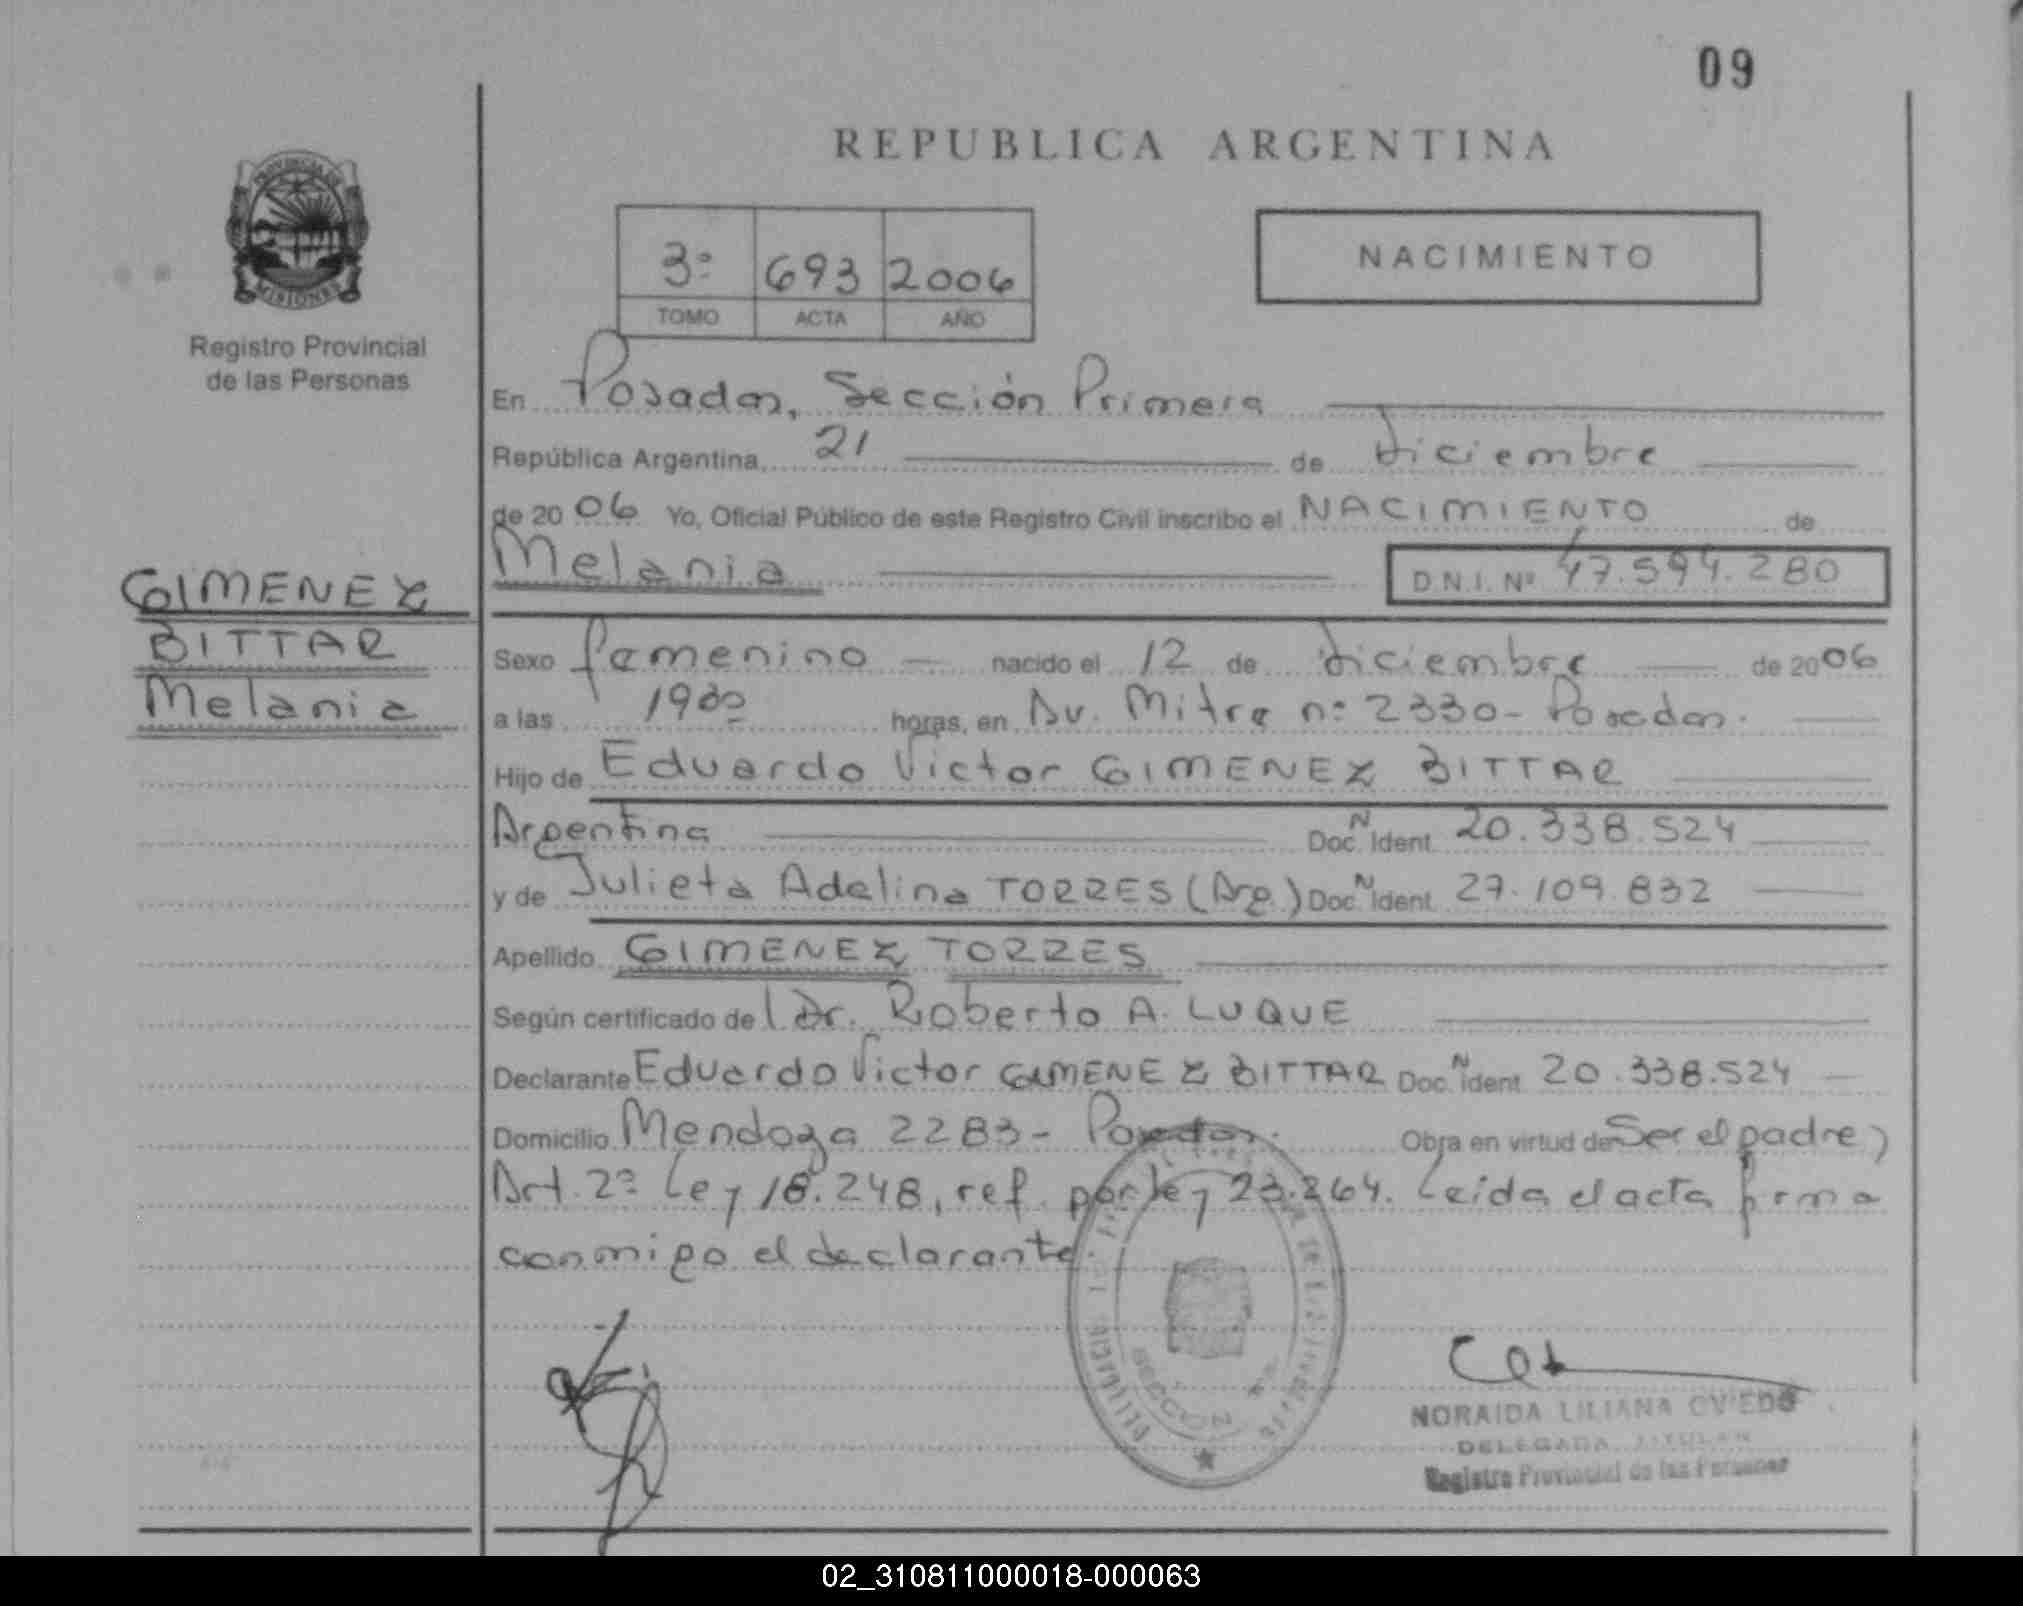 09
REPUBLICA ARGENTINA
PROVINCIA DE
MISIONES
Registro Provincial
de las Personas
3º 693 2006
TOMO ACTA AÑO
NACIMIENTO
En Posadas, Sección Primera
República Argentina, 21 de diciembre
de 2006 Yo, Oficial Público de este Registro Civil inscribo el NACIMIENTO de
Melania D.N.I. Nº 47.594.280
GIMENEZ
BITTAR
Melania
Sexo femenino nacido el 12 de diciembre de 2006
a las 1900 horas, en Av. Mitre nº 2330- Posadas.
Hijo de Eduardo Victor GIMENEZ BITTAR
Argentina Doc. N Ident. 20.338.524
y de Julieta Adelina TORRES (Arg.) Doc. N Ident. 27.109.832
Apellido GIMENEZ TORRES
Según certificado de l Dr. Roberto A. LUQUE
Declarante Eduardo Victor GIMENEZ BITTAR Doc. N Ident. 20.338.524
Domicilio Mendoza 2283- Posadas. Obra en virtud de Ser el padre,
Art. 2º Ley 18.248, ref. por ley 23.264. Leida el acta firma
conmigo el declarante
SECCION
NORAIDA LILIANA OVIEDO
DELEGADA TITULAR
Registro Provincial de las Personas
02_310811000018-000063